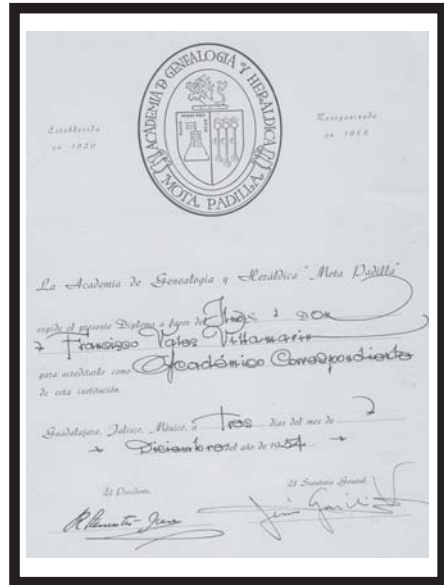 ACADEMIA D GENEALOGIA Y HERALDICA
MOTA PADILLA
Establecida
en 1920
Reorganizada
en
La Academia de Genealogía y Heráldica "Mota Padilla"
expide el presente Diploma a favor del S. DON
Francisco Vales Villamarín
para acreditarlo como Académico Correspondiente
de esta institución.
Guadalajara, Jalisco, México, a Tres días del mes de
Diciembre del año de 1954
El Presidente,
El Secretario General,